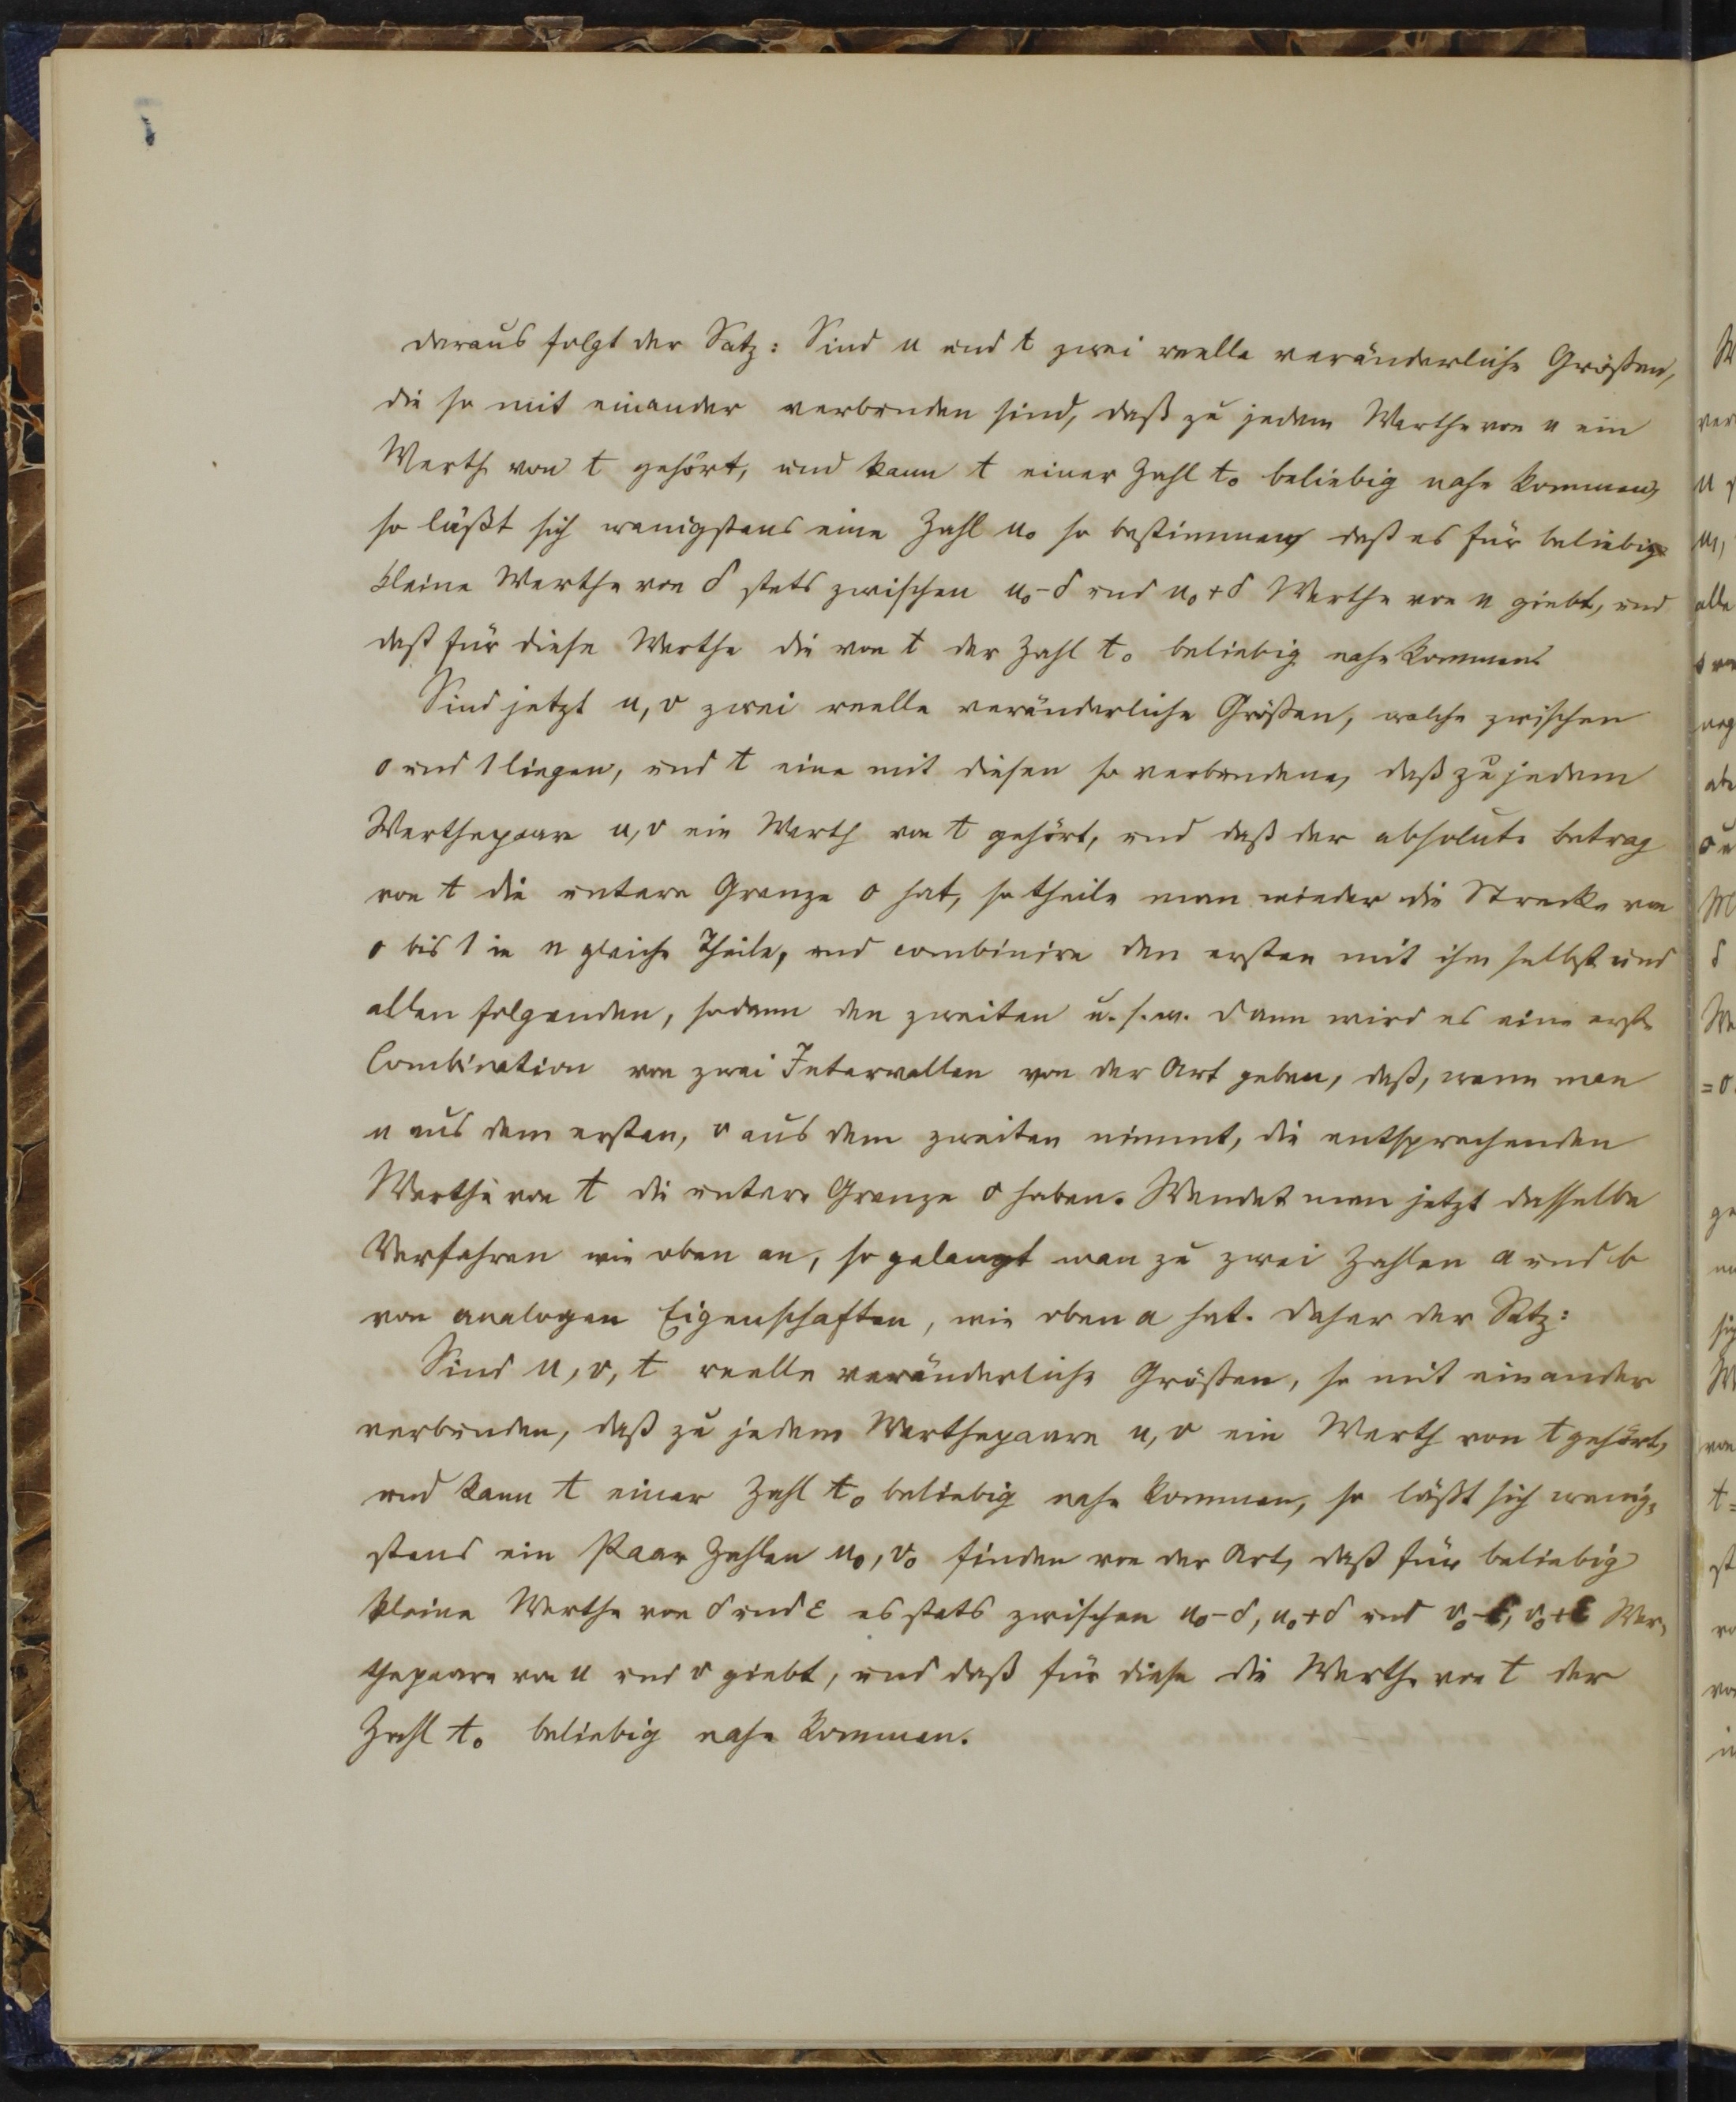 daraus folgt der Satz: Sind u und t zwei reelle veränderliche Größen,
die so mit einander verbunden sind, daß zu jedem Werthe von u ein
Werth von t gehört, und kann t einer Zahl t₀ beliebig nahe kommen,
so läßt sich wenigstens eine Zahl u₀ so bestimmen, daß es für beliebig
kleine Werthe von δ stets zwischen u₀-δ und u₀+δ Werthe von u giebt, und
daß für diese Werthe die von t der Zahl t₀ beliebig nahe kommen.
Sind jetzt u, v zwei reelle veränderliche Größen, welche zwischen
0 und 1 liegen, und t eine mit diesen so verbundene, daß zu jedem
Werthepaare u, v ein Werth von t gehört, und daß der absolute Betrag
von t die untere Grenze 0 hat, so theile man wieder die Strecke von
0 bis 1 in n gleiche Theile, und combinire den ersten mit ihm selbst und
allen folgenden, sodann den zweiten u. s. w. Dann wird es eine erste
Combination von zwei Intervallen von der Art geben, daß, wenn man
u aus dem ersten, v aus dem zweiten nimmt, die entsprechenden
Werthe von t die untere Grenze 0 haben. Wendet man jetzt dasselbe
Verfahren wie oben an, so gelangt man zu zwei Zahlen a und b
von analogen Eigenschaften, wie oben a hat. Daher der Satz:
Sind u, v, t reelle veränderliche Größen, so mit einander
verbunden, daß zu jedem Werthepaare u, v ein Werth von t gehört,
und kann t einer Zahl t₀ beliebig nahe kommen, so läßt sich wenig-
stens ein Paar Zahlen u₀, v₀ finden von der Art, daß für beliebig
kleine Werthe von δ und ε es stets zwischen u₀-δ, u₀+δ und v₀-ε, v₀+ε Wer-
thepaare von u und v giebt, und daß für diese die Werthe von t der
Zahl t₀ beliebig nahe kommen.